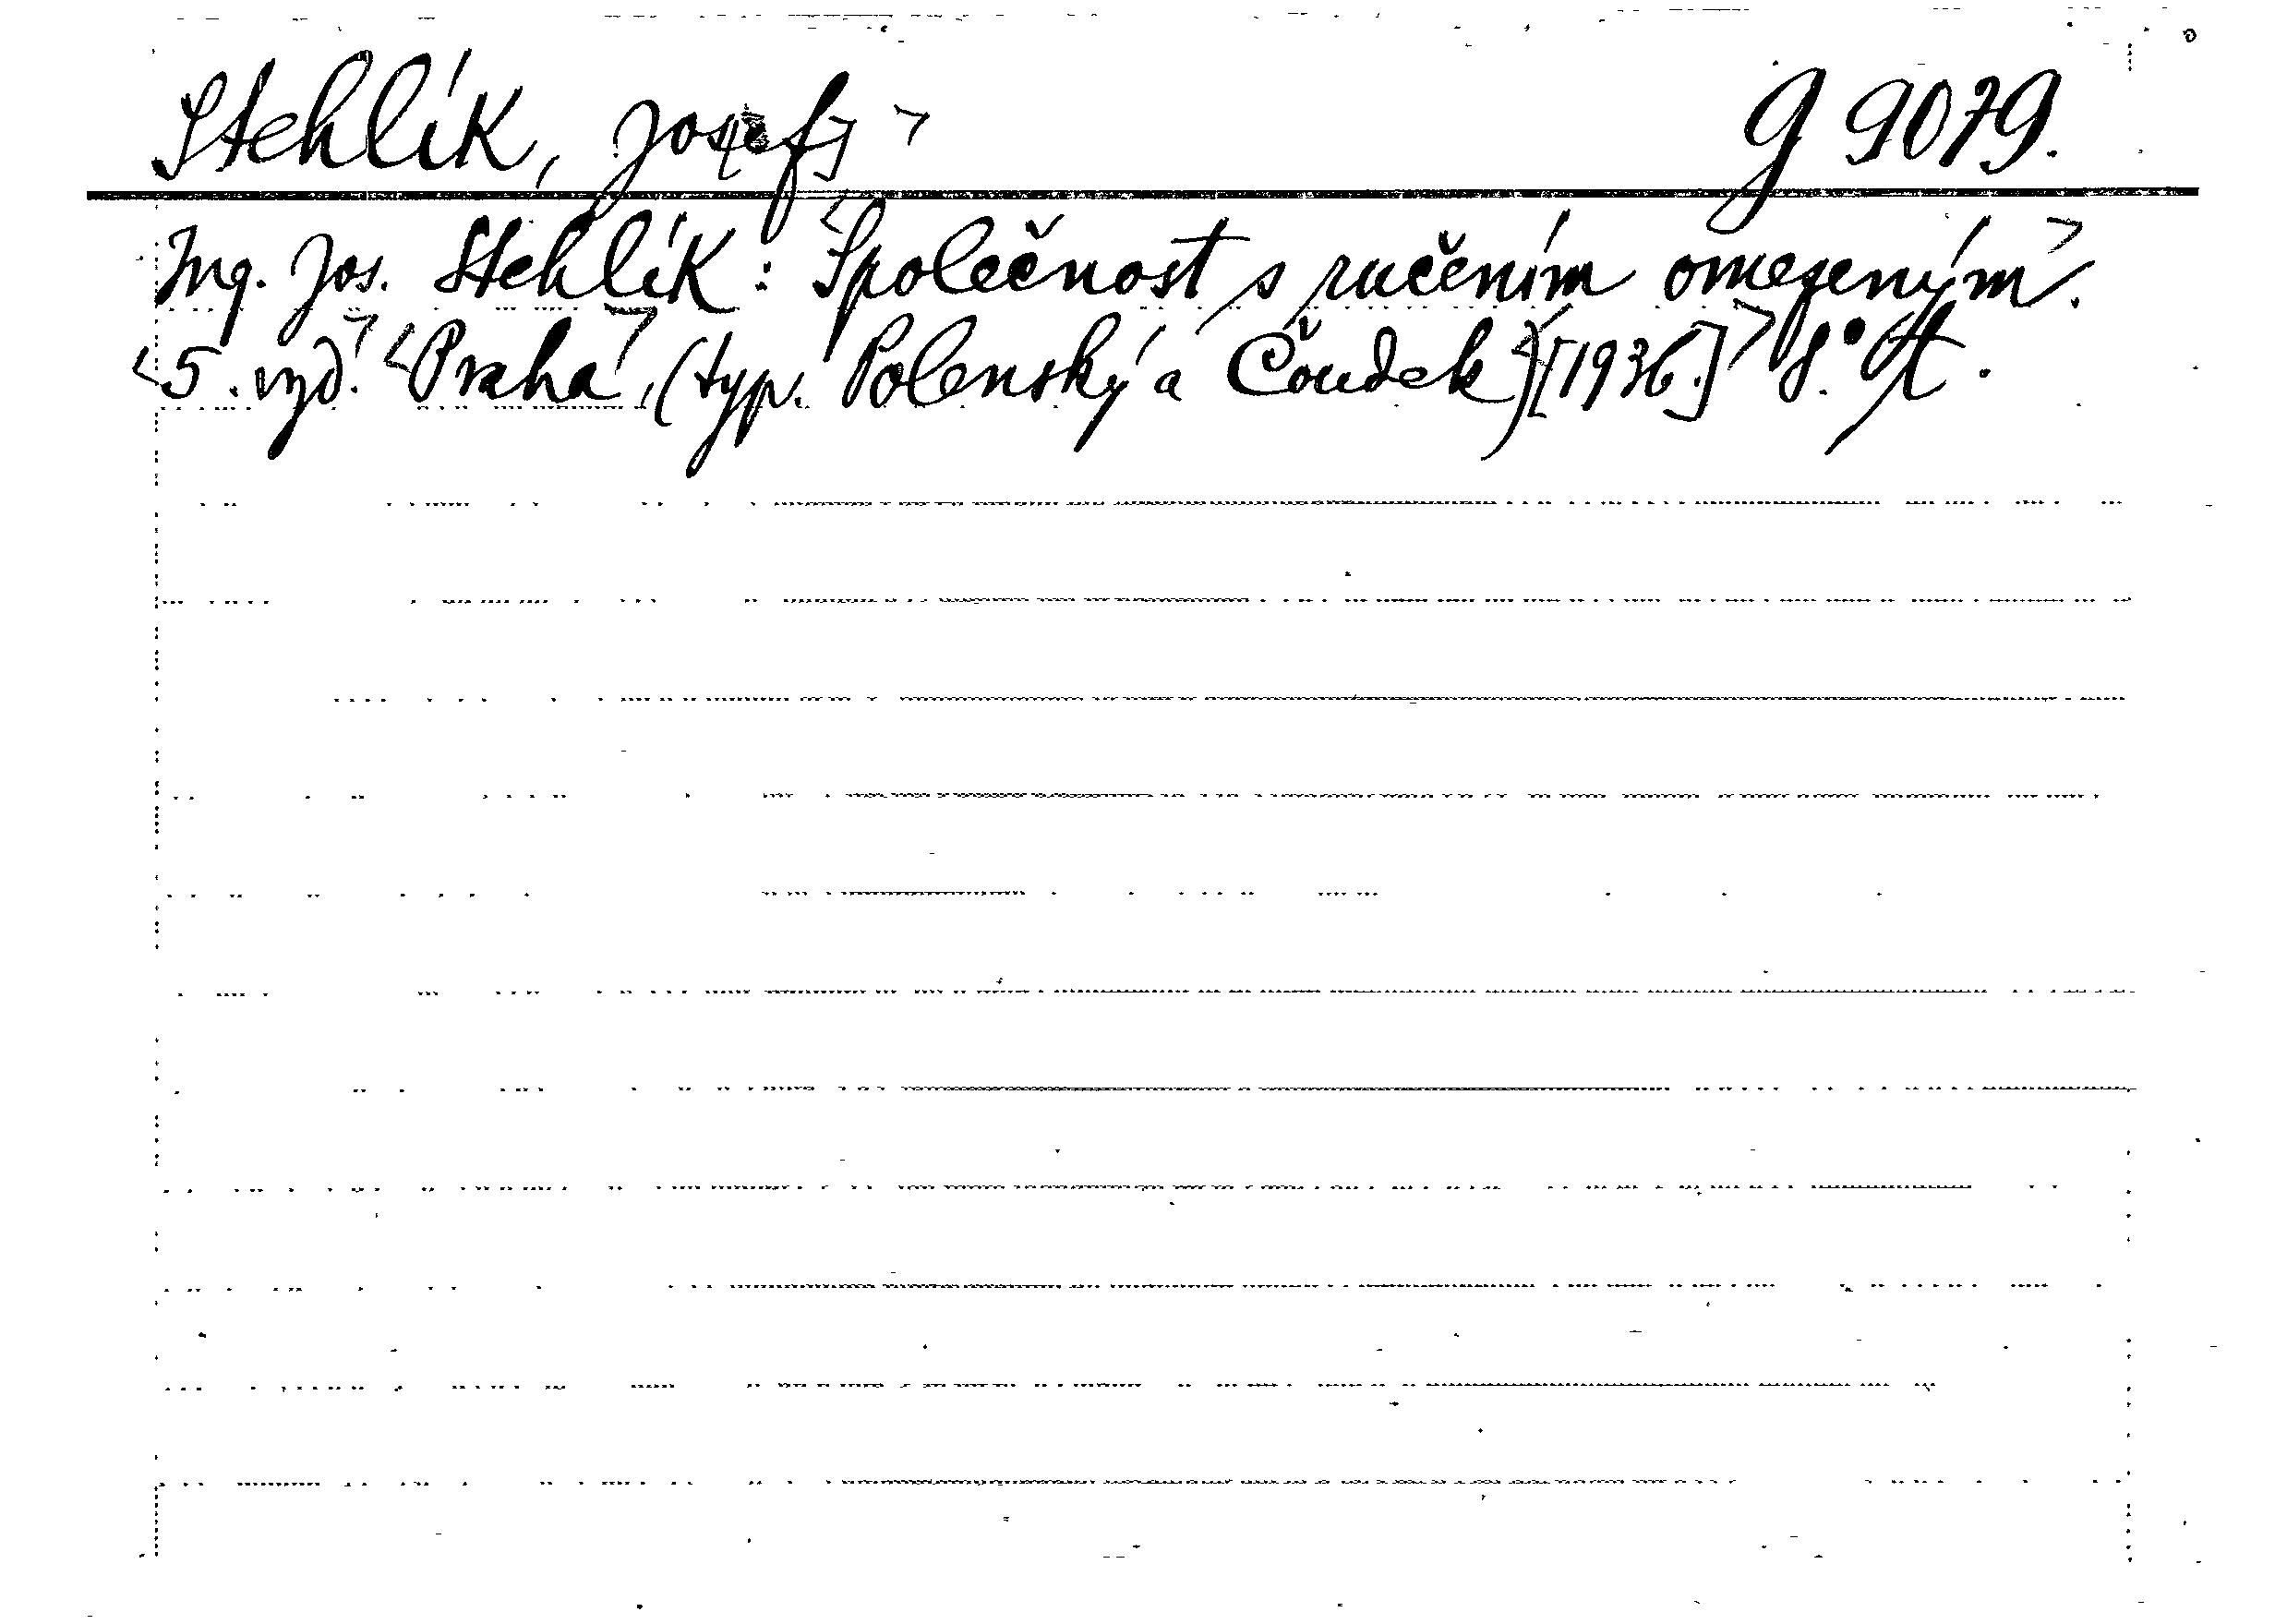 Stehlík, Jos[ef] > g 9079.
Ing. Jos. Stehlík: <Společnost s ručením omezeným>.
<5. vyd.> <Praha>, (typ. Polenský a Čoudek) <[1936.]> 8.°